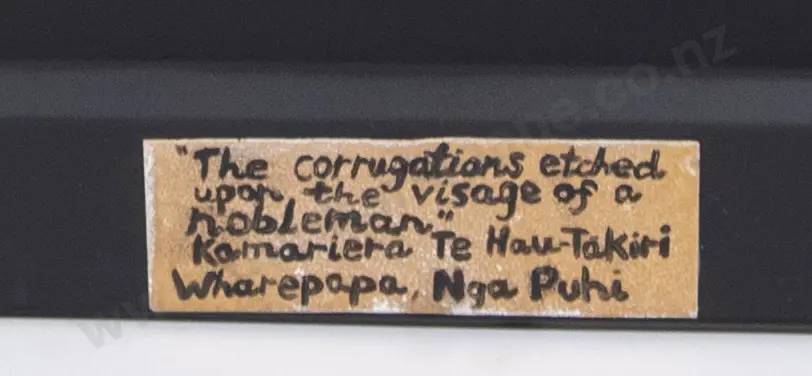 "The corrugations etched
upon the visage of a
nobleman."
Kamariera Te Hau-Takiri
Wharepapa, Nga Puhi